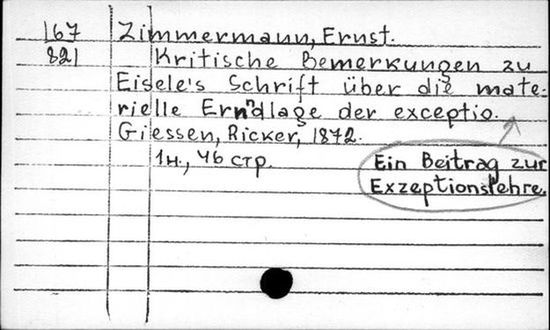 167 Zimmermann, Ernst.
821 Kritische Bemerkungen zu
Eisele's Schrift über die mate-
rielle Erndlage der exceptio.
Giessen, Ricker, 1872.
1н., 46 стр.
Ein Beitrag zur
Exzeptionslehre.